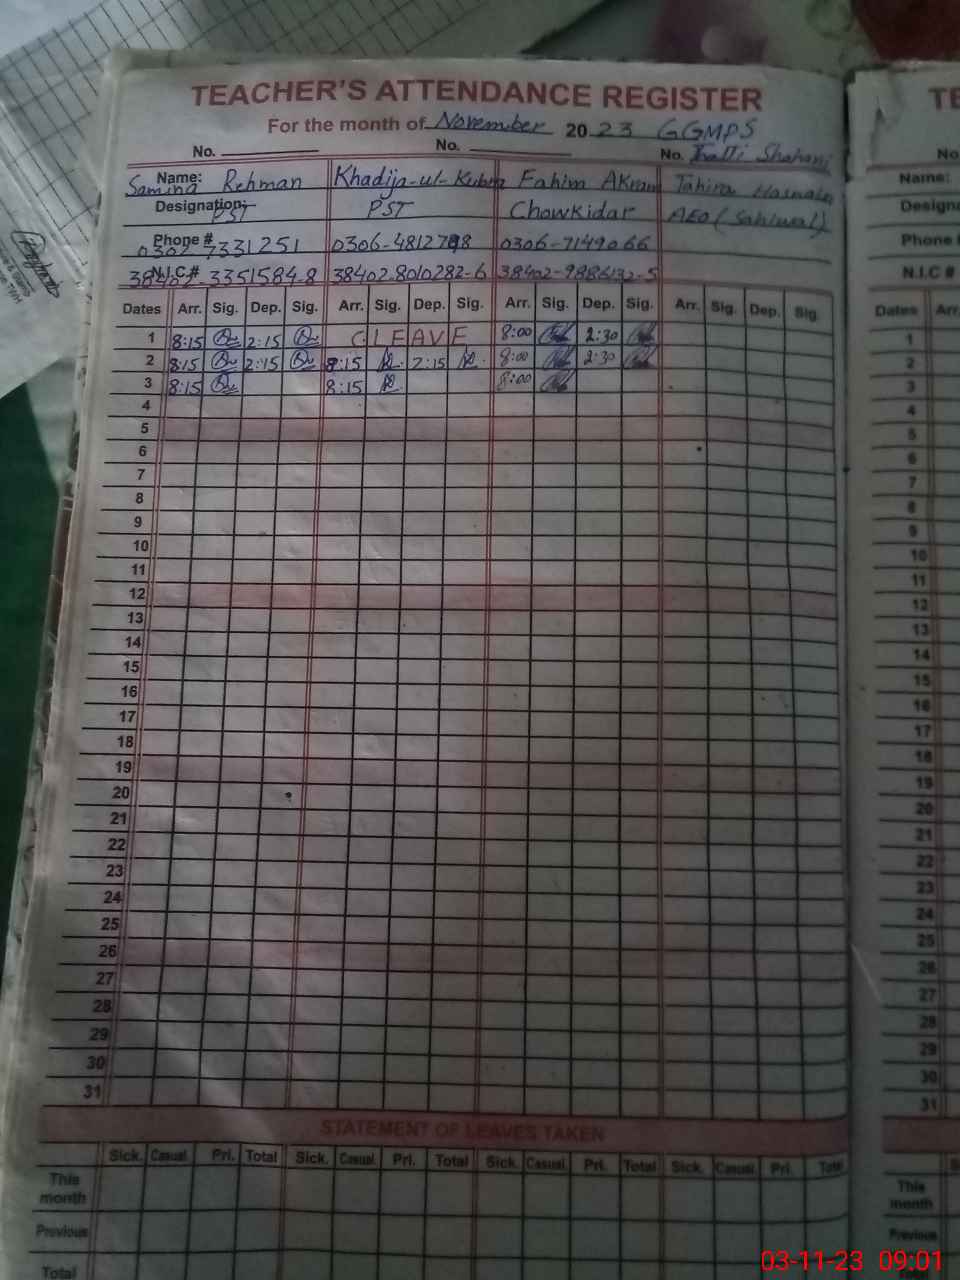 TEACHER'S ATTENDANCE REGISTER TE
For the month of November 2023 GGMPS
No. No. No. Thatti Shahani No
Name: Samina Rehman Khadija-ul-Kubra Fahim Akram Tahira Hasnain Name:
Designation: PST PST Chowkidar AEO (Sahiwal) Designa
Phone # 7331251 0306- 0306-7149066 Phone
N.I.C# 3351584-8 38402-8010282-6 38402-9886132-5 N.I.C #
Dates Arr. Sig. Dep. Sig. Arr. Sig. Dep. Sig. Arr. Sig. Dep. Sig. Arr. Sig. Dep. Sig. Dates Arr.
1 8:15 2:15 C LEAVE 8:00 2:30 1
2 8:15 2:15 8:15 2:15 8:00 2:30 2
3 8:15 8:15 8:00 3
4 4
5 5
6 6
7 7
8 8
9 9
10 10
11 11
12 12
13 13
14 14
15 15
16 16
17 17
18 18
19 19
20 20
21 21
22 22
23 23
24 24
25 25
26 26
27 27
28 28
29 29
30 30
31 31
STATEMENT OF LEAVES TAKEN
Sick. Casual. Pri. Total Sick. Casual. Pri. Total Sick. Casual. Pri. Total Sick. Casual. Pri. Total S
This month This month
Previous Previous
Total Total
03-11-23 09:01